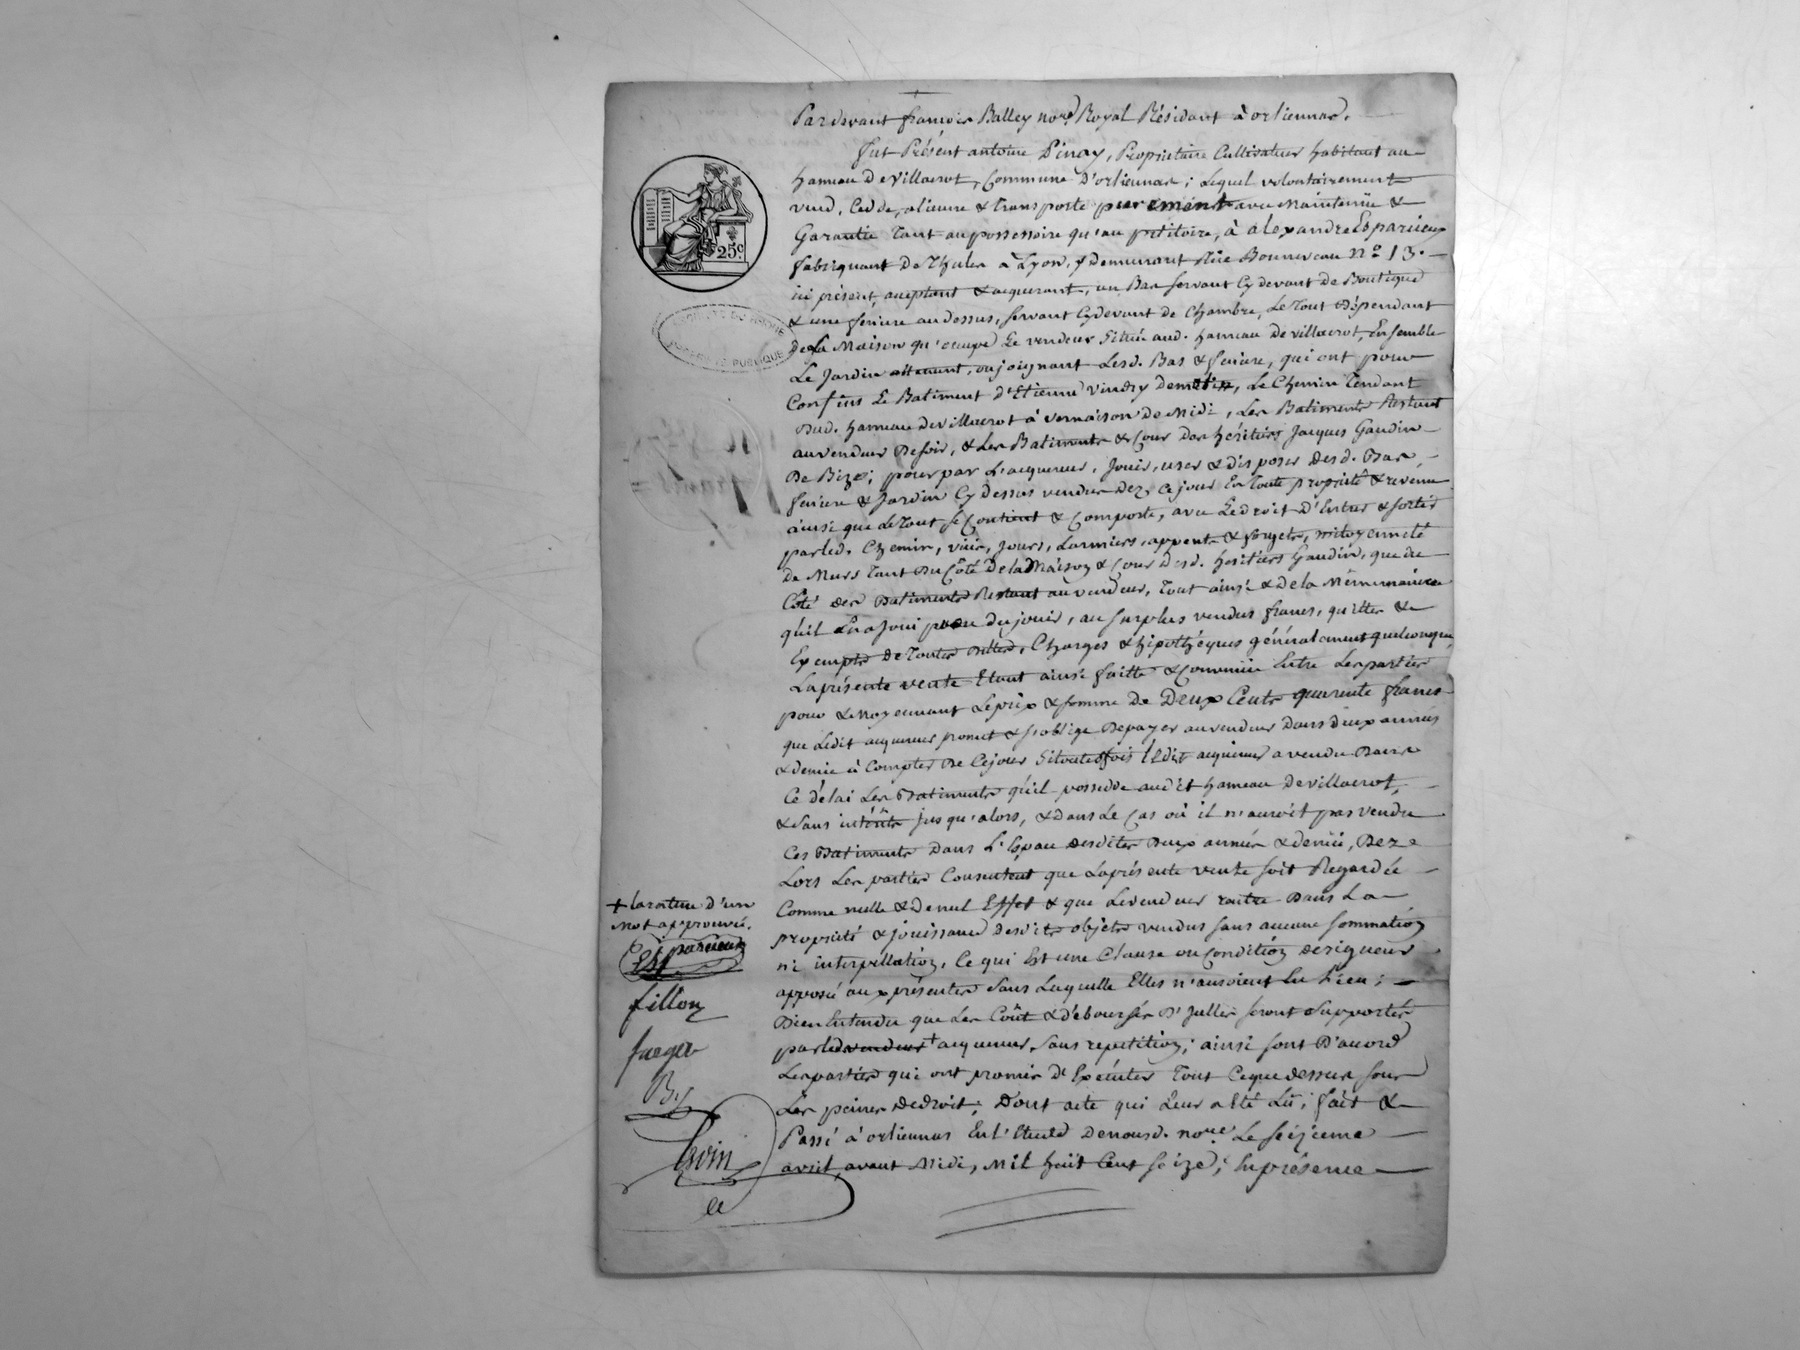 Pardevant françois Balley nore. Royal Résidant à orliennas.
fut Présent antoine Pinay, Propriétaire Cultivateur habitant au
hameau De Villacrot, Commune D'orliennas; Lequel volontairement
vend, Cedde, alienne & transporte purement avec Maintenüe &
Garantie Tant au possessoire qu'au pétitoire, à aléxandre Esparcieux
fabriquant De Thules à Lyon, y demeurant Rüe Bonneveau N° 13.
ici présent, aceptant & acquerant, un Bas servant Cy devant de Boutique
& une feniere au dessus, servant Cydevant de Chambre, Le Tout Dépendant
de La Maison qu'occupe Le vendeur Sittüé aud. hameau De villacrot, Ensemble
Le Jardin attenant, ou joignant Lesd. Bas & feniere, qui ont pour
Confins Le Batiment d'Etienne Vindry De matin, Le Chemin Tendant
Dud. hameau De villacrot à vernaison De Midi, Les Batiments Restant
au vendeur De soir, & Les Batiments & Cour Des héritiers Jacques Gaudin
De Bize; pour par L'acquereur, Jouir, user & disposer Desd. Bas,
feniere & Jardin Cy Dessus vendus Dez Ce jour En Toute propriété & revenu
ainsi que Le Tout se Contient & Comporte, avec Le droit d'Entrer & sortir
par led. Chemin, vües, jours, Larmiers, appents & forgets, mitoyenneté
de Murs Tant Du Côté De la Maison & Cour Desd. héritiers Gaudin, que du
Côté des Batiments Restant au vendeur, Tout ainsi & De la Même maniere
qu'il En a Joui pu ou du jouir, au surplus vendus francs, quittes &
Exempts de Toutes Dettes, Charges & hipothéques généralement quelconques,
La présente vente Etant ainsi faitte & Convenüe Entre Les parties
pour & Moyennant Le prix & somme De Deux Cents quarente francs
que Ledit acquereur promet & s'oblige De payer au vendeur Dans deux années
& demie à Compter De Ce jour Si toutesfois Ledit acquereur a vendu Dans
Ce délai Les Batiments qu'il possedde audit hameau De villacrot,
& Sans intérêts jusqu'alors, & Dans Le Cas où il n'auroit pas vendu
Ces Batiments Dans L'Espace desdites Deux années & demie, Dez
Lors Les parties Consentent que La présente vente soit Regardée
Comme nulle & De nul Effet & que Le vendeur rentre Dans La
propriété & jouissance Desdits objets vendus sans aucune sommation
ni interpellation, Ce qui Est une Clause ou Condition de rigueur
apposée aux présentes Sans Laquelle Elles n'auroient Eu Lieu;
Bien Entendu que Les Coût & débourses D'Jcelles seront Supportés
par led. vendeur + acquereur, Sans repetition; ainsi sont D'acord
Les parties qui ont promis D'Exécuter Tout Ce que dessus sous
Les peines De droit; Dont acte qui Leur a Eté Lû; fait &
Passé à orliennas En L'Etude De nousd. nore. Le seizieme
avril avant Midi, Mil huit Cent seize; En présence
25c.
+ la rature d'un
mot approuvée.
Esparcieux
fillon